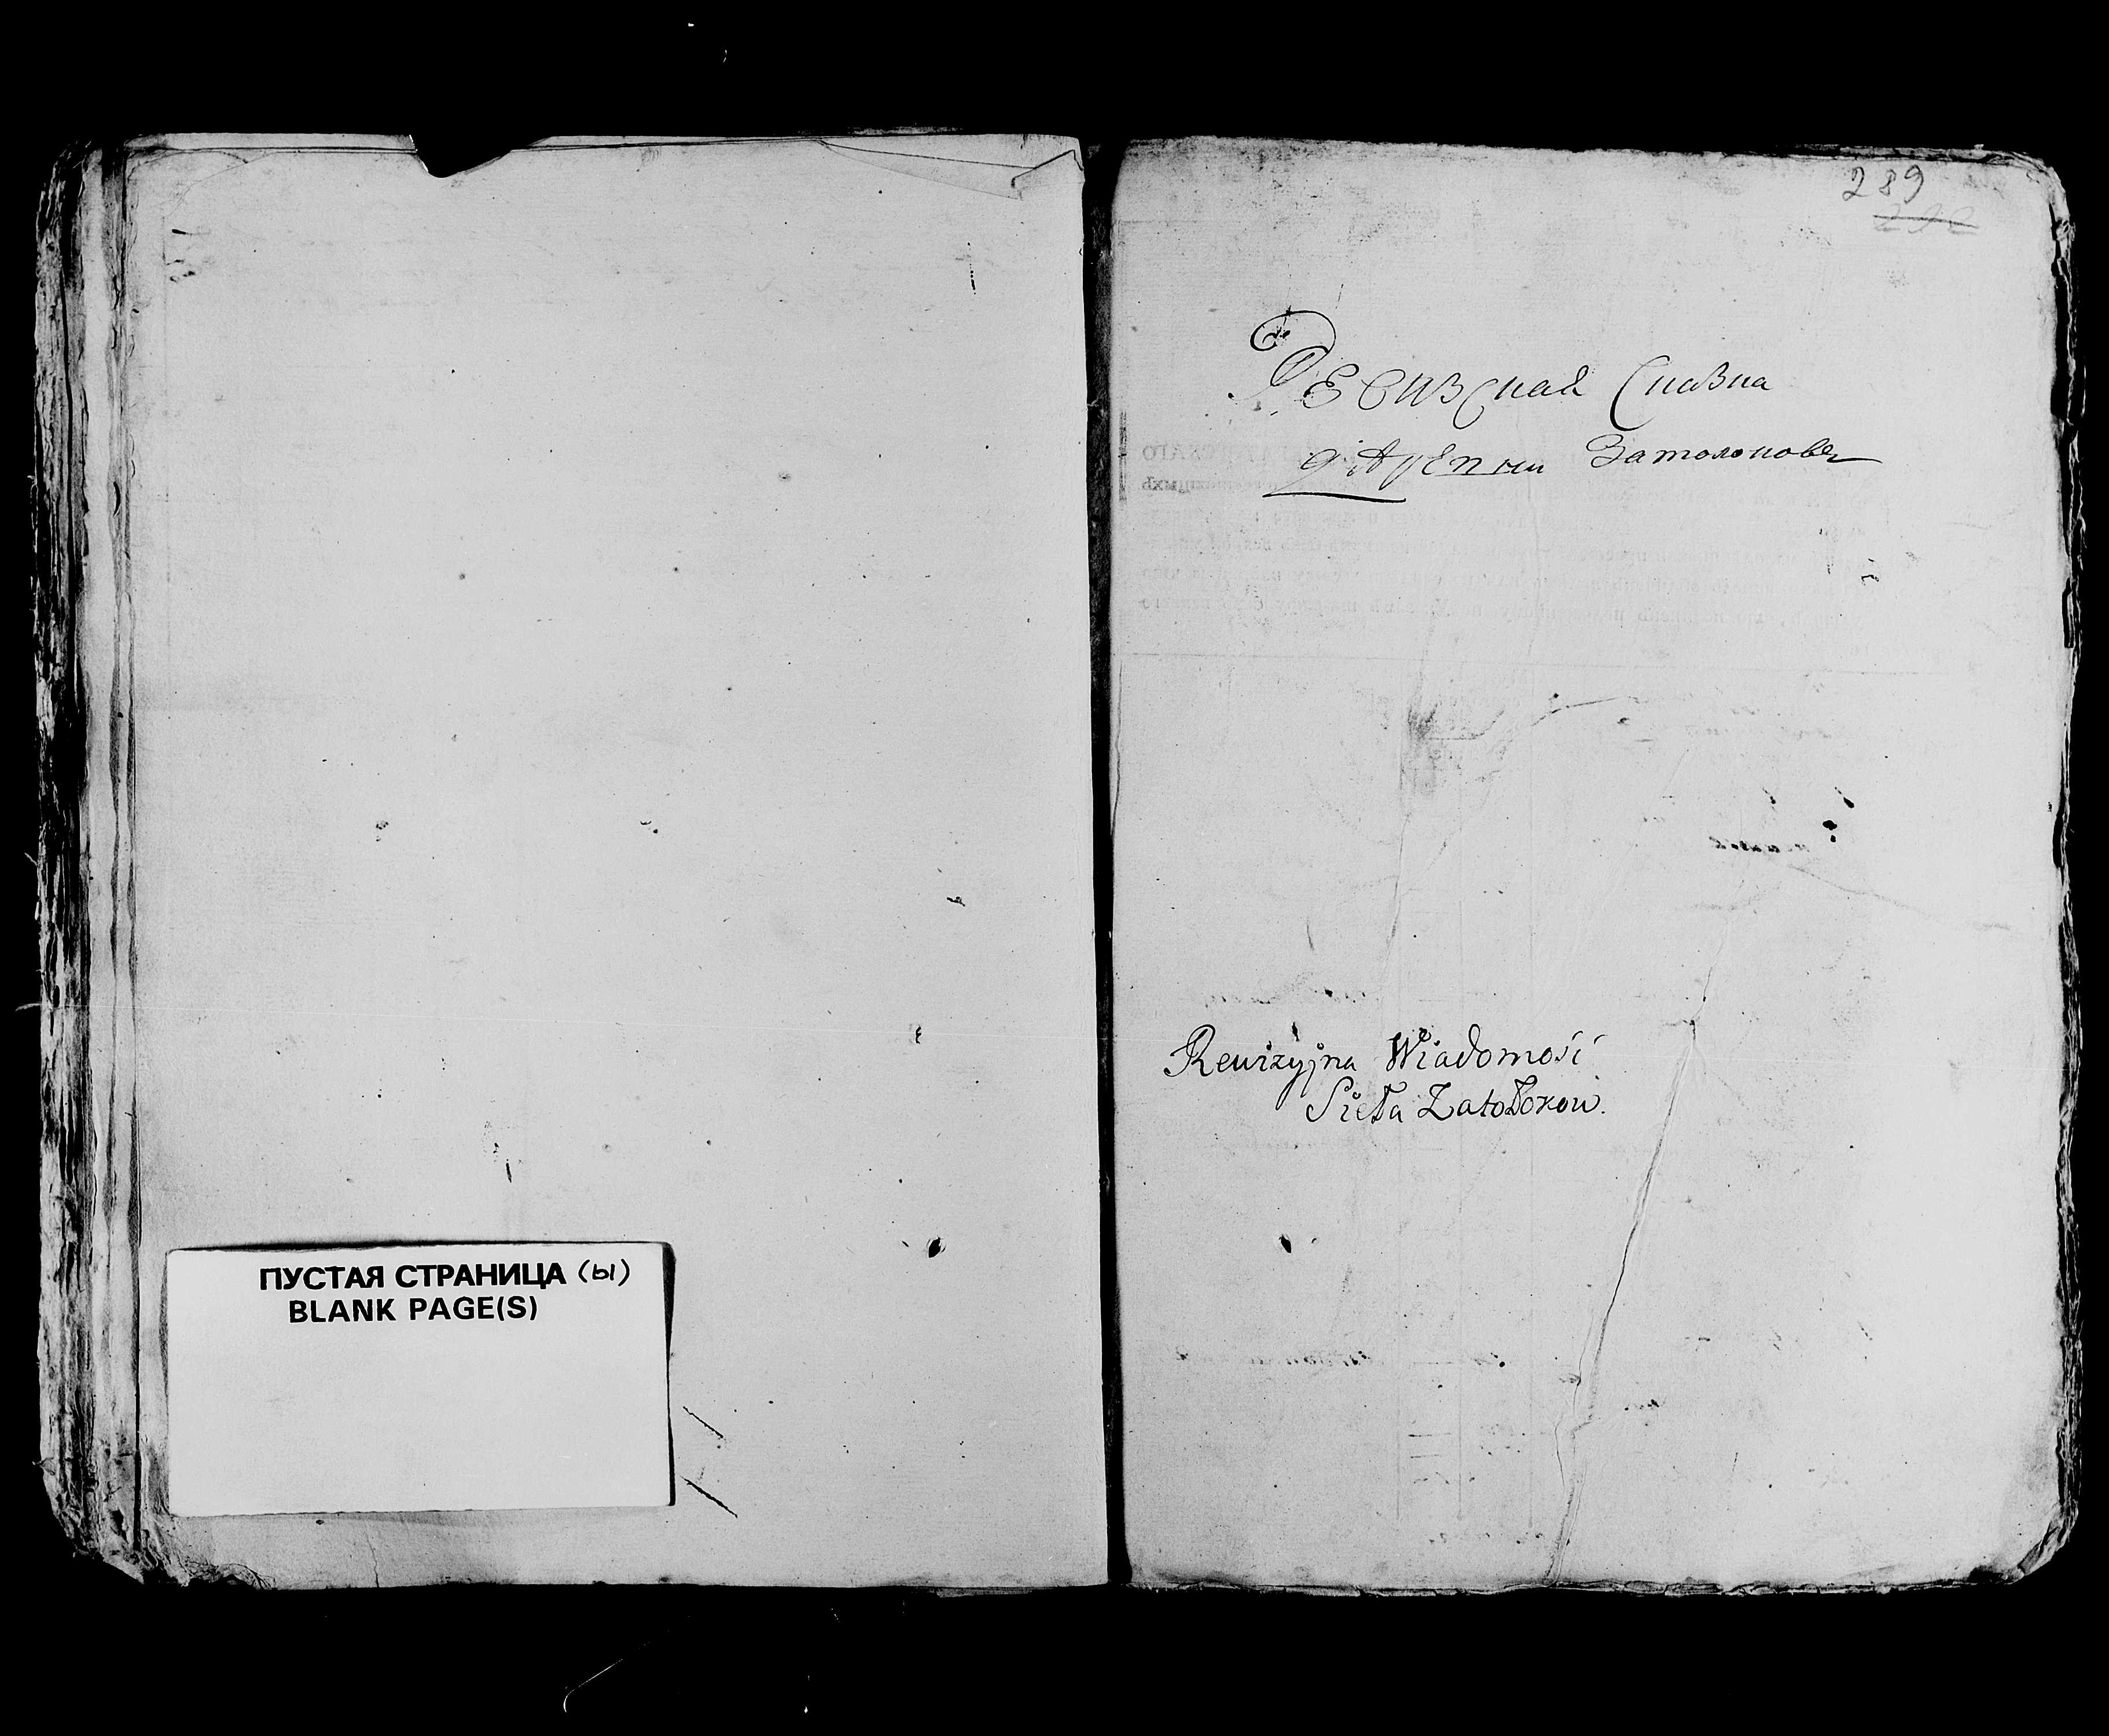 ПУСТАЯ СТРАНИЦА (ы)
BLANK PAGE(S)
289
Ревизская Сказка
дяревни Затолоковъ
Rewizyjna Wiadomość
Sieła Zatołokow.